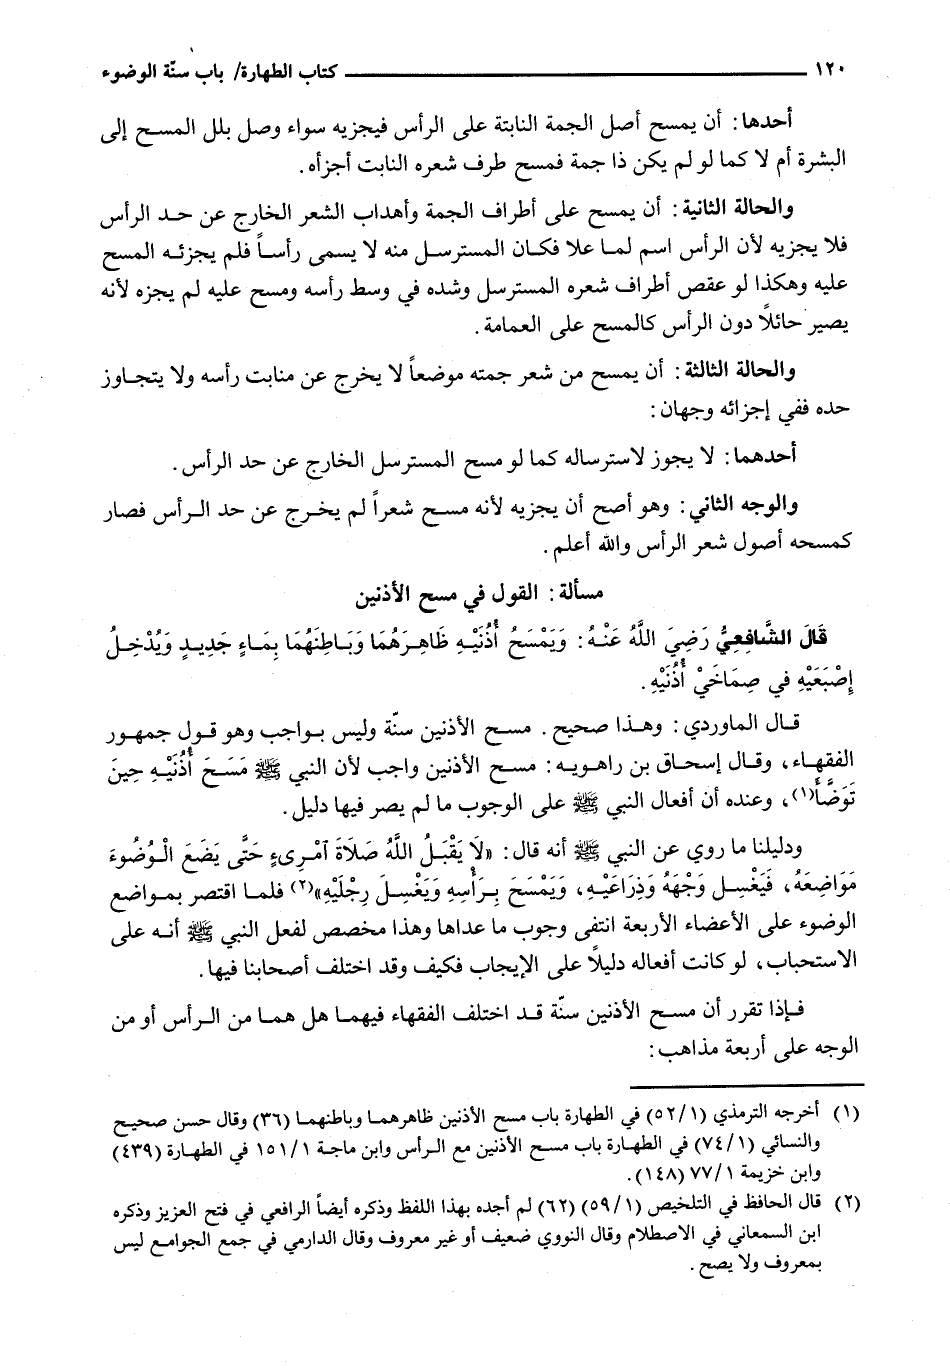 ١٢٠ كتاب الطهارة/ باب سنّة الوضوء
أحدها: أن يمسح أصل الجمة النابتة على الرأس فيجزيه سواء وصل بلل المسح إلى
البشرة أم لا كما لو لم يكن ذا جمة فمسح طرف شعره النابت أجزأه.
والحالة الثانية: أن يمسح على أطراف الجمة وأهداب الشعر الخارج عن حد الرأس
فلا يجزيه لأن الرأس اسم لما علا فكان المسترسل منه لا يسمى رأساً فلم يجزئه المسح
عليه وهكذا لو عقص أطراف شعره المسترسل وشده في وسط رأسه ومسح عليه لم يجزه لأنه
يصير حائلاً دون الرأس كالمسح على العمامة.
والحالة الثالثة: أن يمسح من شعر جمته موضعاً لا يخرج عن منابت رأسه ولا يتجاوز
حده ففي إجزائه وجهان:
أحدهما: لا يجوز لاسترساله كما لو مسح المسترسل الخارج عن حد الرأس.
والوجه الثاني: وهو أصح أن يجزيه لأنه مسح شعراً لم يخرج عن حد الرأس فصار
كمسحه أصول شعر الرأس والله أعلم.
مسألة: القول في مسح الأذنين
قَالَ الشَّافِعِيُّ رَضِيَ اللَّهُ عَنْهُ: وَيَمْسَحُ أُذُنَيْهِ ظَاهِرَهُمَا وَبَاطِنَهُمَا بِمَاءٍ جَدِيدٍ وَيُدْخِلُ
إِصْبَعَيْهِ في صِمَاخَيْ أُذُنَيْهِ.
قال الماوردي: وهذا صحيح. مسح الأذنين سنّة وليس بواجب وهو قول جمهور
الفقهاء، وقال إسحاق بن راهويه: مسح الأذنين واجب لأن النبي ﷺ مَسَحَ أُذُنَيْهِ حِينَ
تَوَضَّأَ(١)، وعنده أن أفعال النبي ﷺ على الوجوب ما لم يصر فيها دليل.
ودليلنا ما روي عن النبي ﷺ أنه قال: «لَا يَقْبَلُ اللَّهُ صَلَاةَ آمْرِىءٍ حَتَّى يَضَعَ الْوُضُوءَ
مَوَاضِعَهُ، فَيَغْسِل وَجْهَهُ وَذِرَاعَيْهِ، وَيَمْسَحَ بِرَأْسِهِ وَيَغْسِلَ رِجْلَيْهِ»(٢) فلما اقتصر بمواضع
الوضوء على الأعضاء الأربعة انتفى وجوب ما عداها وهذا مخصص لفعل النبي ﷺ أنه على
الاستحباب، لو كانت أفعاله دليلاً على الإيجاب فكيف وقد اختلف أصحابنا فيها.
فإذا تقرر أن مسح الأذنين سنّة قد اختلف الفقهاء فيهما هل هما من الرأس أو من
الوجه على أربعة مذاهب:
(١) أخرجه الترمذي (١/ ٥٢) في الطهارة باب مسح الأذنين ظاهرهما وباطنهما (٣٦) وقال حسن صحيح
والنسائي (١/ ٧٤) في الطهارة باب مسح الأذنين مع الرأس وابن ماجة ١/ ١٥١ في الطهارة (٤٣٩)
وابن خزيمة ١/ ٧٧ (١٤٨).
(٢) قال الحافظ في التلخيص (١/ ٥٩) (٦٢) لم أجده بهذا اللفظ وذكره أيضاً الرافعي في فتح العزيز وذكره
ابن السمعاني في الاصطلام وقال النووي ضعيف أو غير معروف وقال الدارمي في جمع الجوامع ليس
بمعروف ولا يصح.